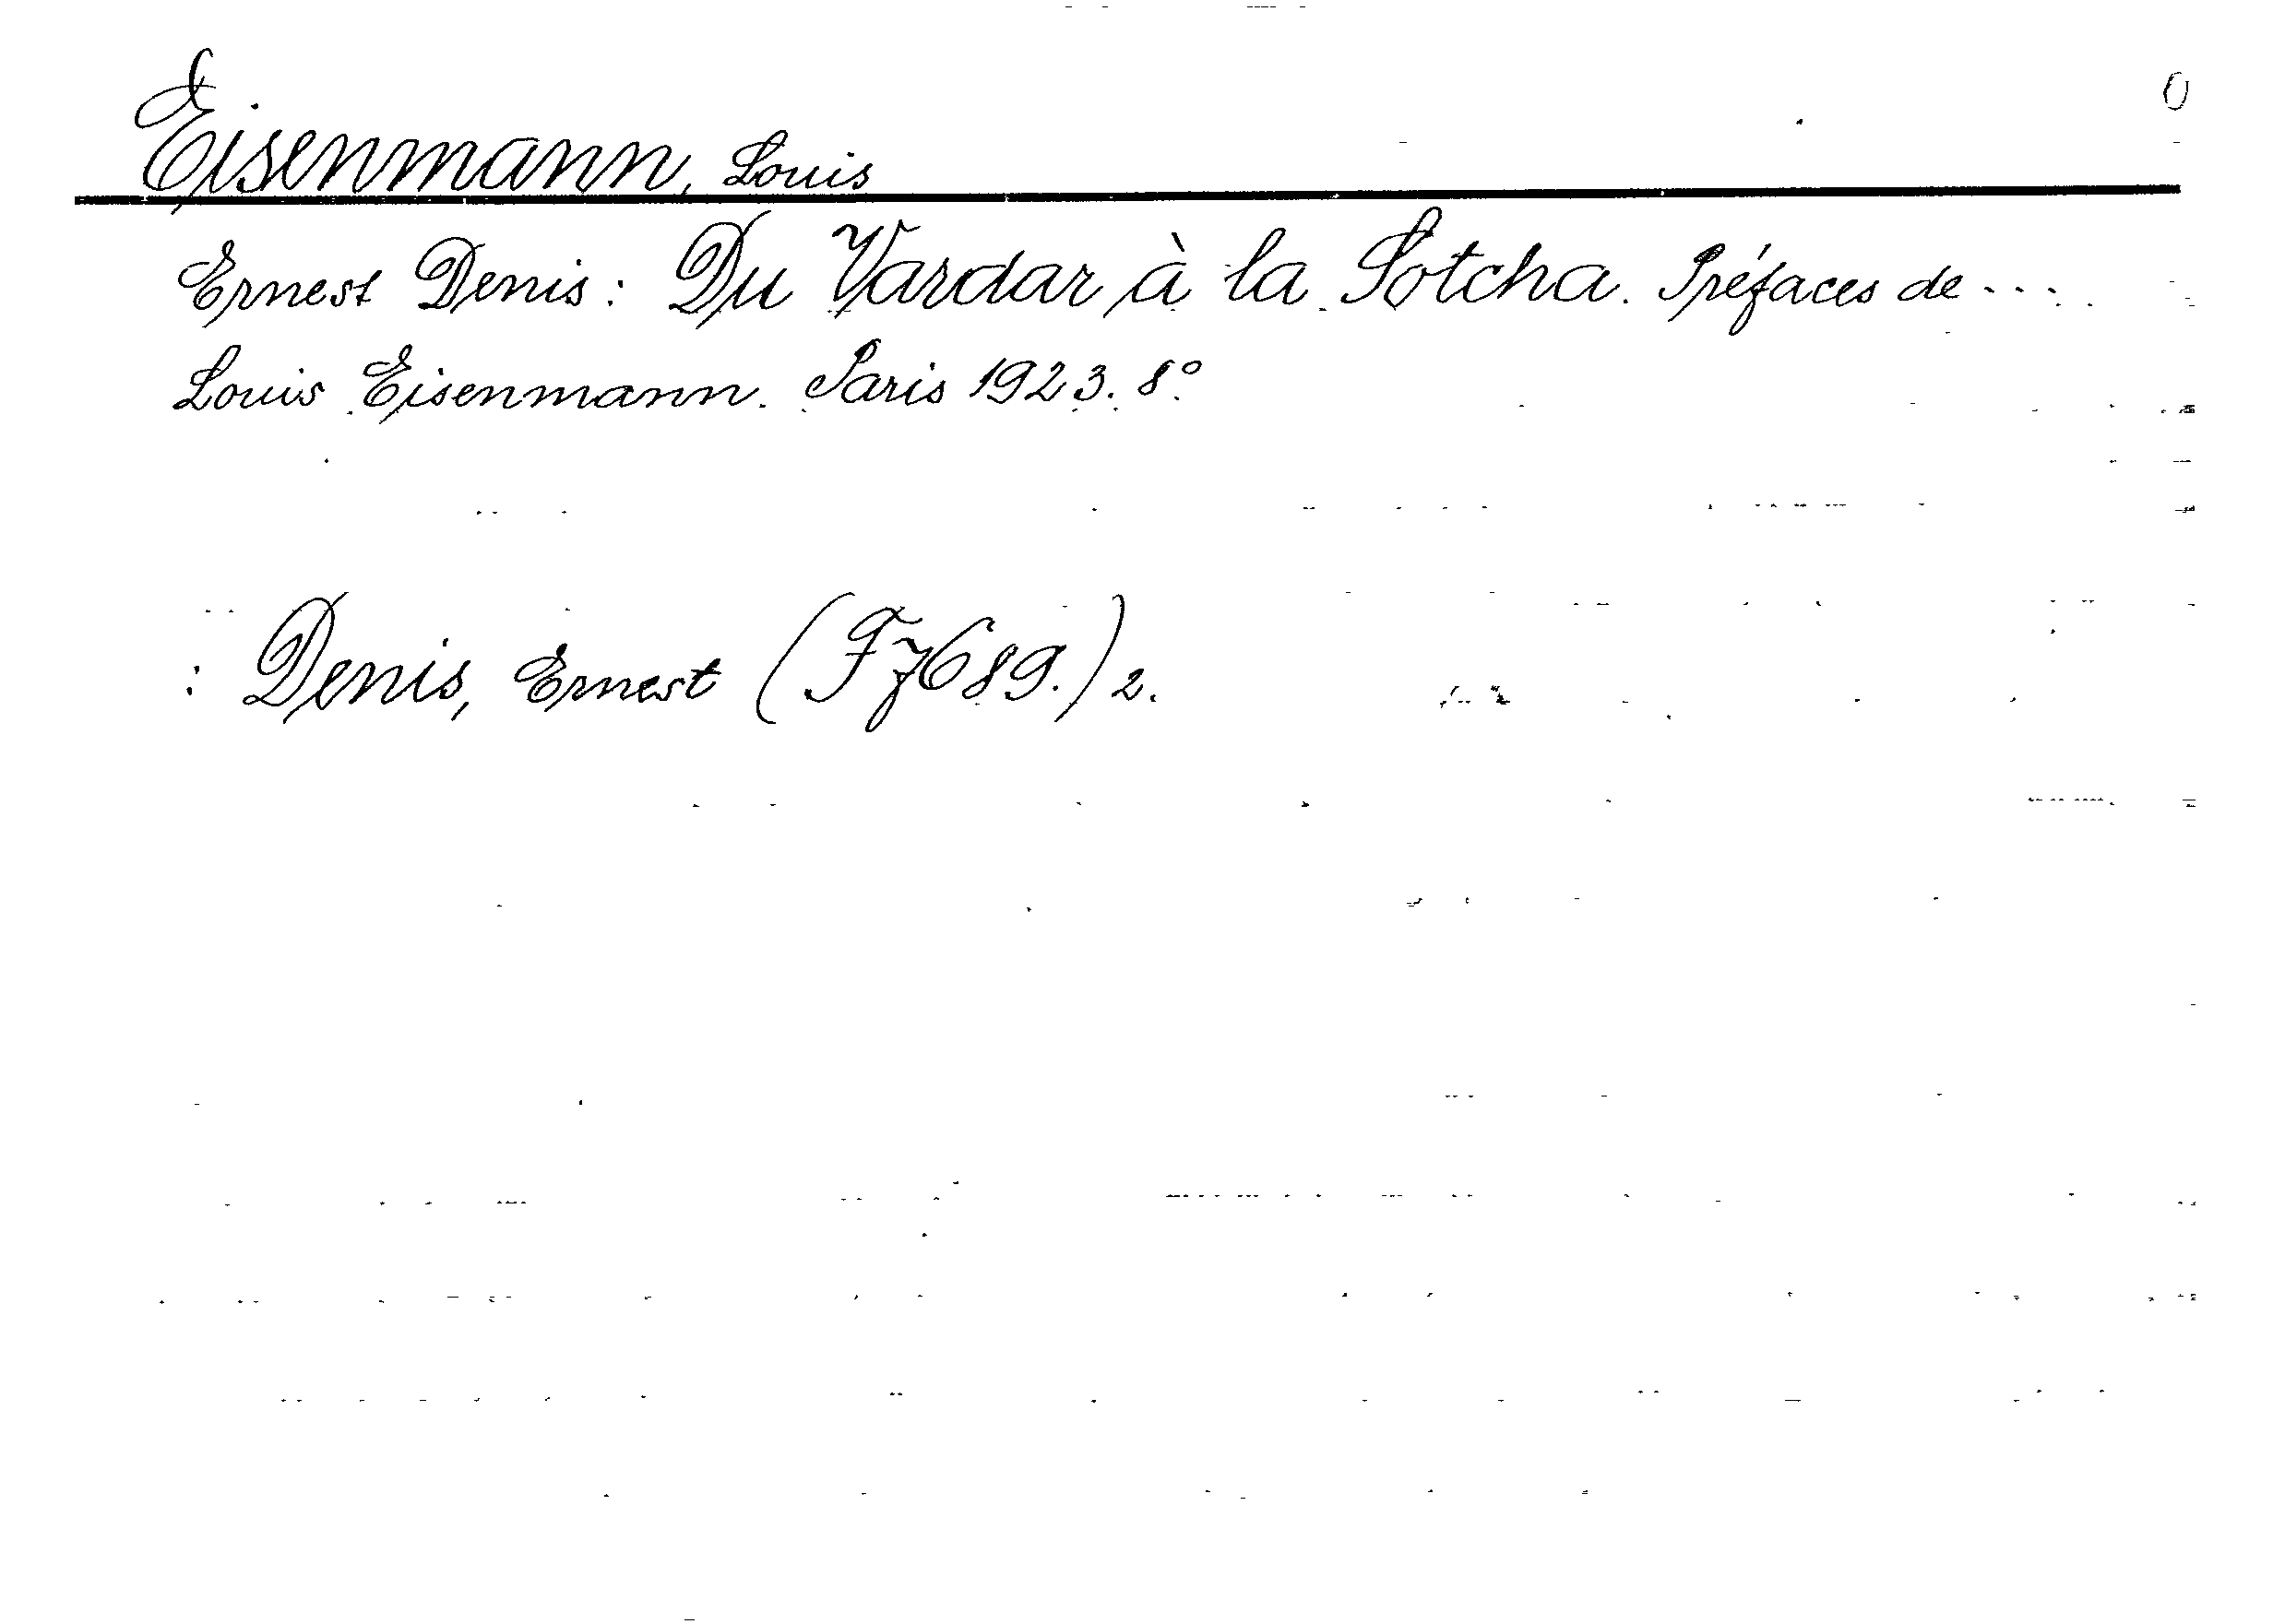 0
Eisenmann, Louis
Ernest Denis: Du Vardar à la Sotcha. Préfaces de ...
Louis Eisenmann. Paris 1923. 8°
: Denis, Ernest (F7689.) 2.